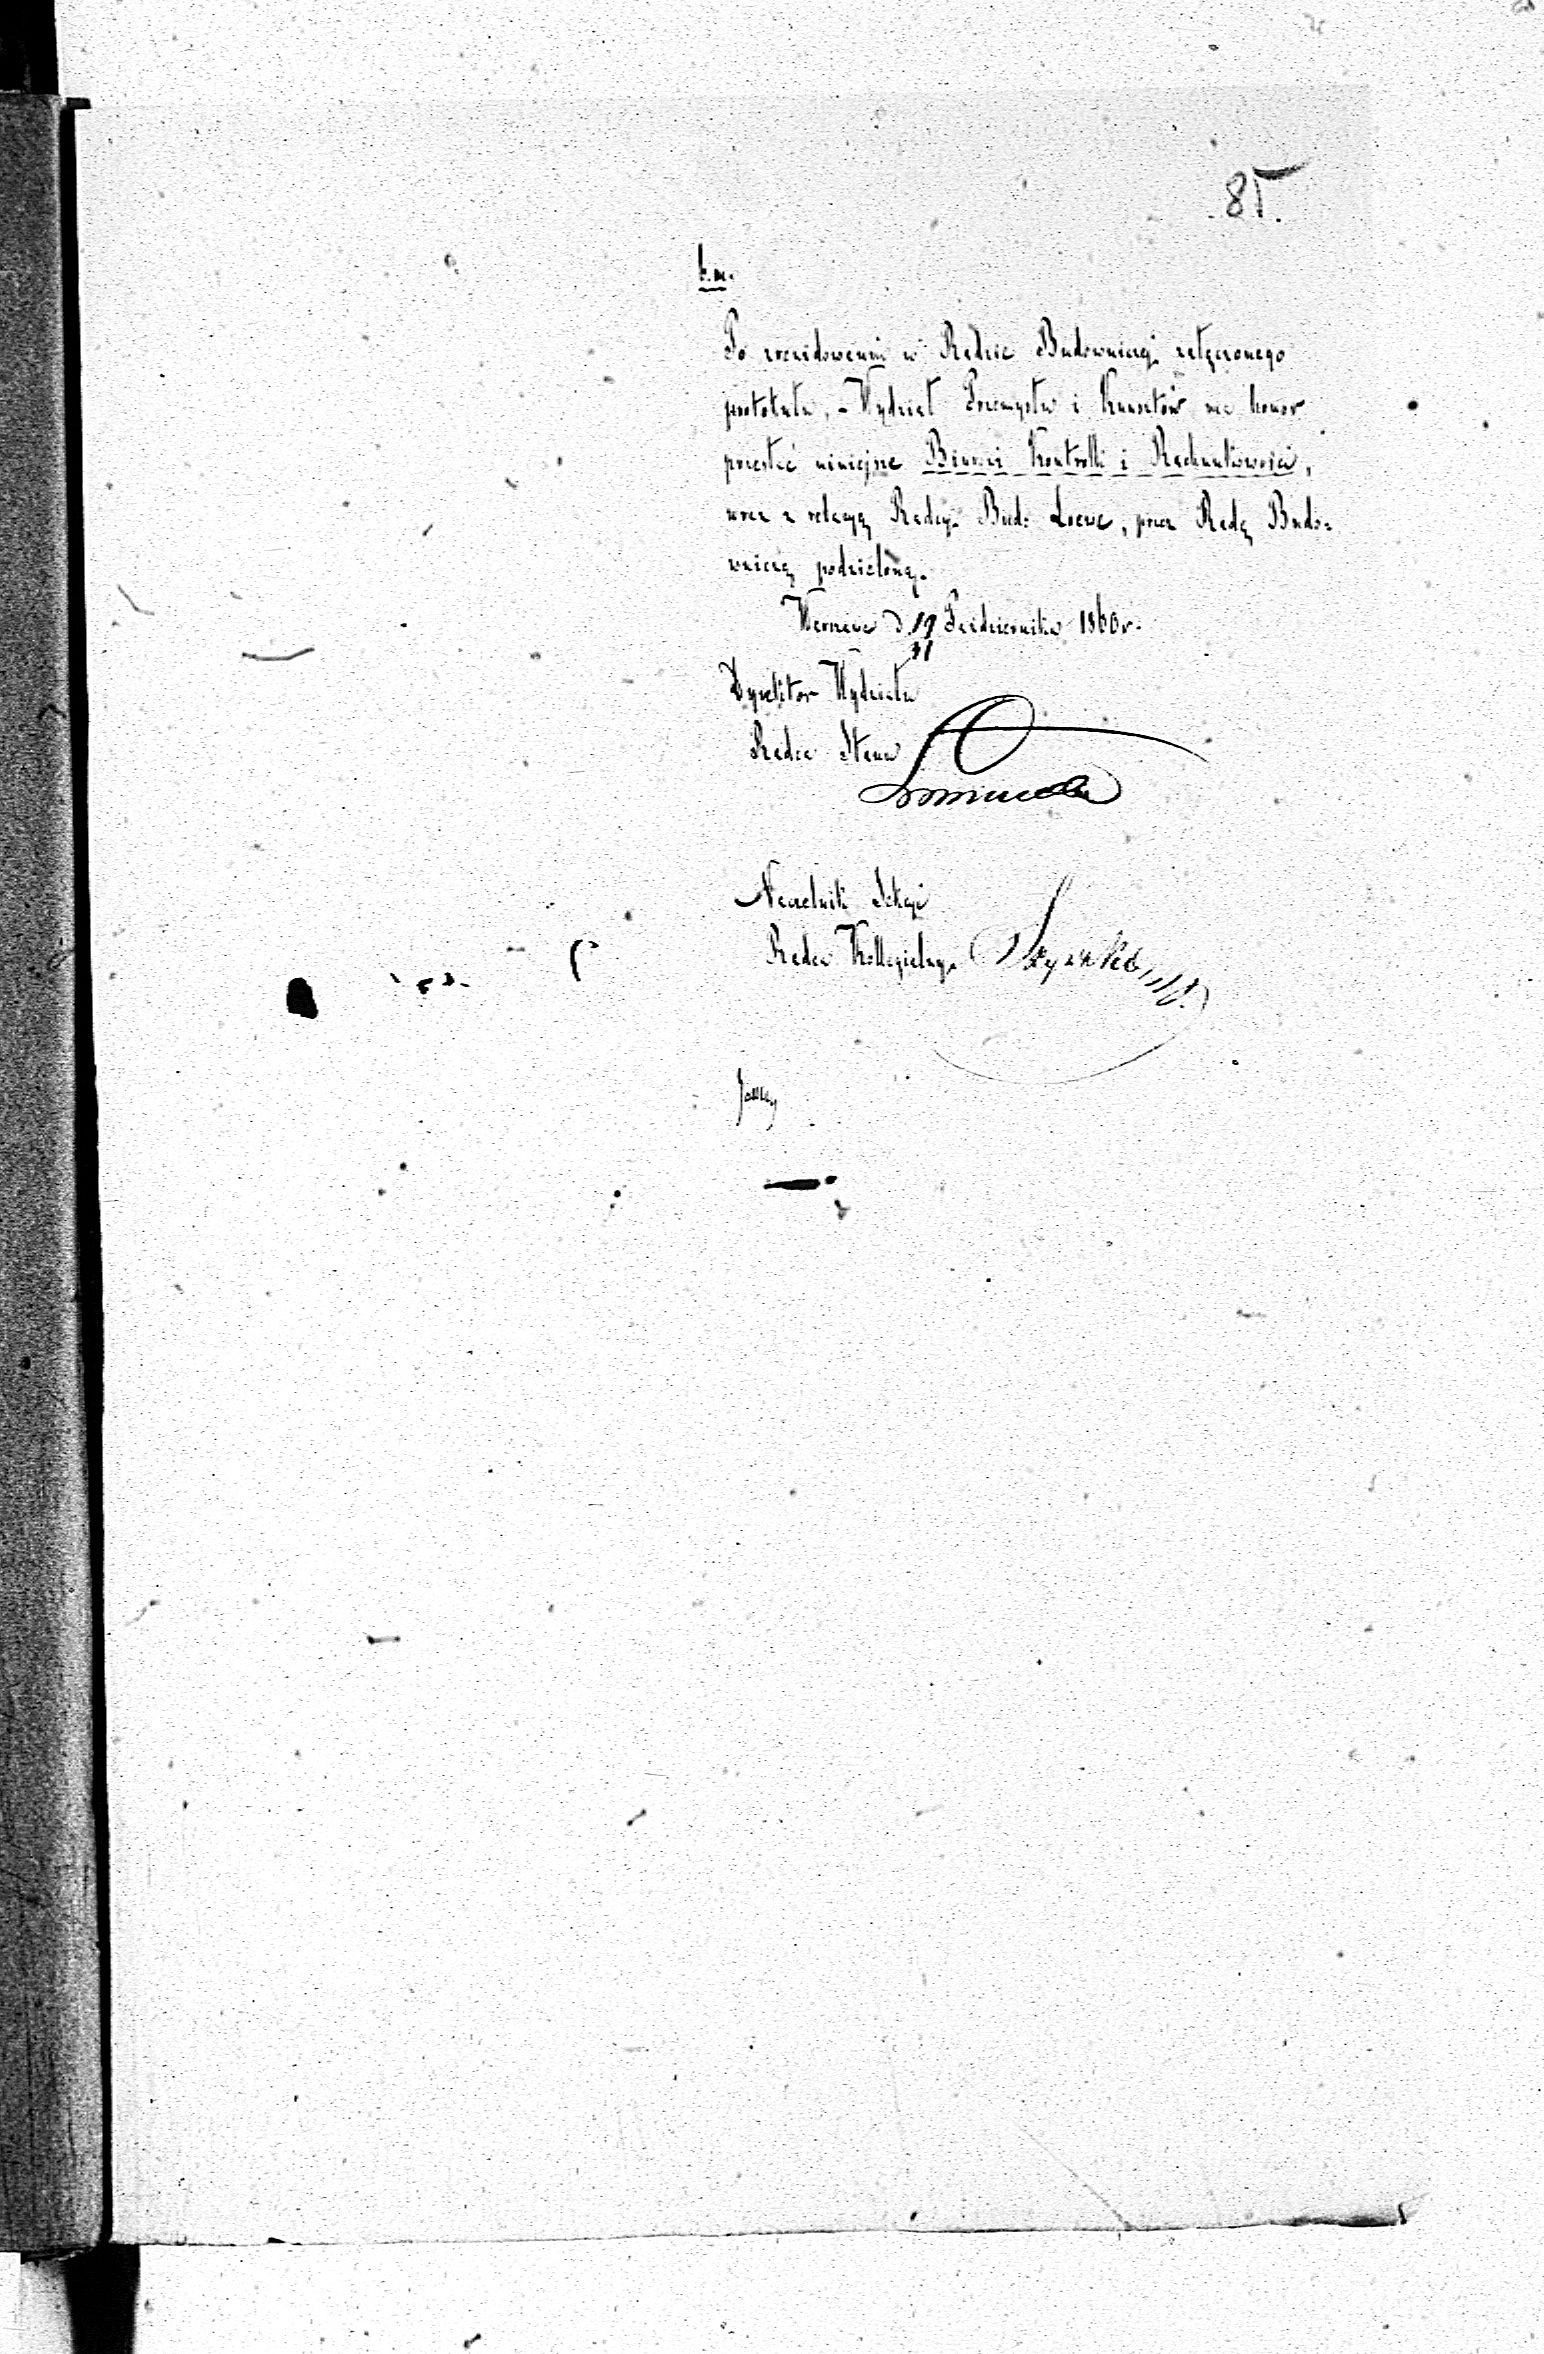 85.
b. m.
Po zrewidowaniu w Radzie Budowniczej załączonego
protokułu, - Wydział Przemysłu i Kunsztów ma honor
przesłać niniejsze Biurowi Kontrolli i Rachunkowości,
wraz z relacyą Radcy Bud: Loewe, przez Radę Budo=
wniczą podzieloną.
Warszawa d. 19/31 Października 1860 r.
Dyrektor Wydziału
Radca Stanu
Naczelnik Sekcyi
Radca Kollegialny